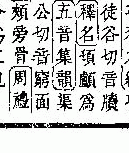 徒谷切音牘
釋名爲
五音集韻渠
公切音窮面
頰旁骨周禮